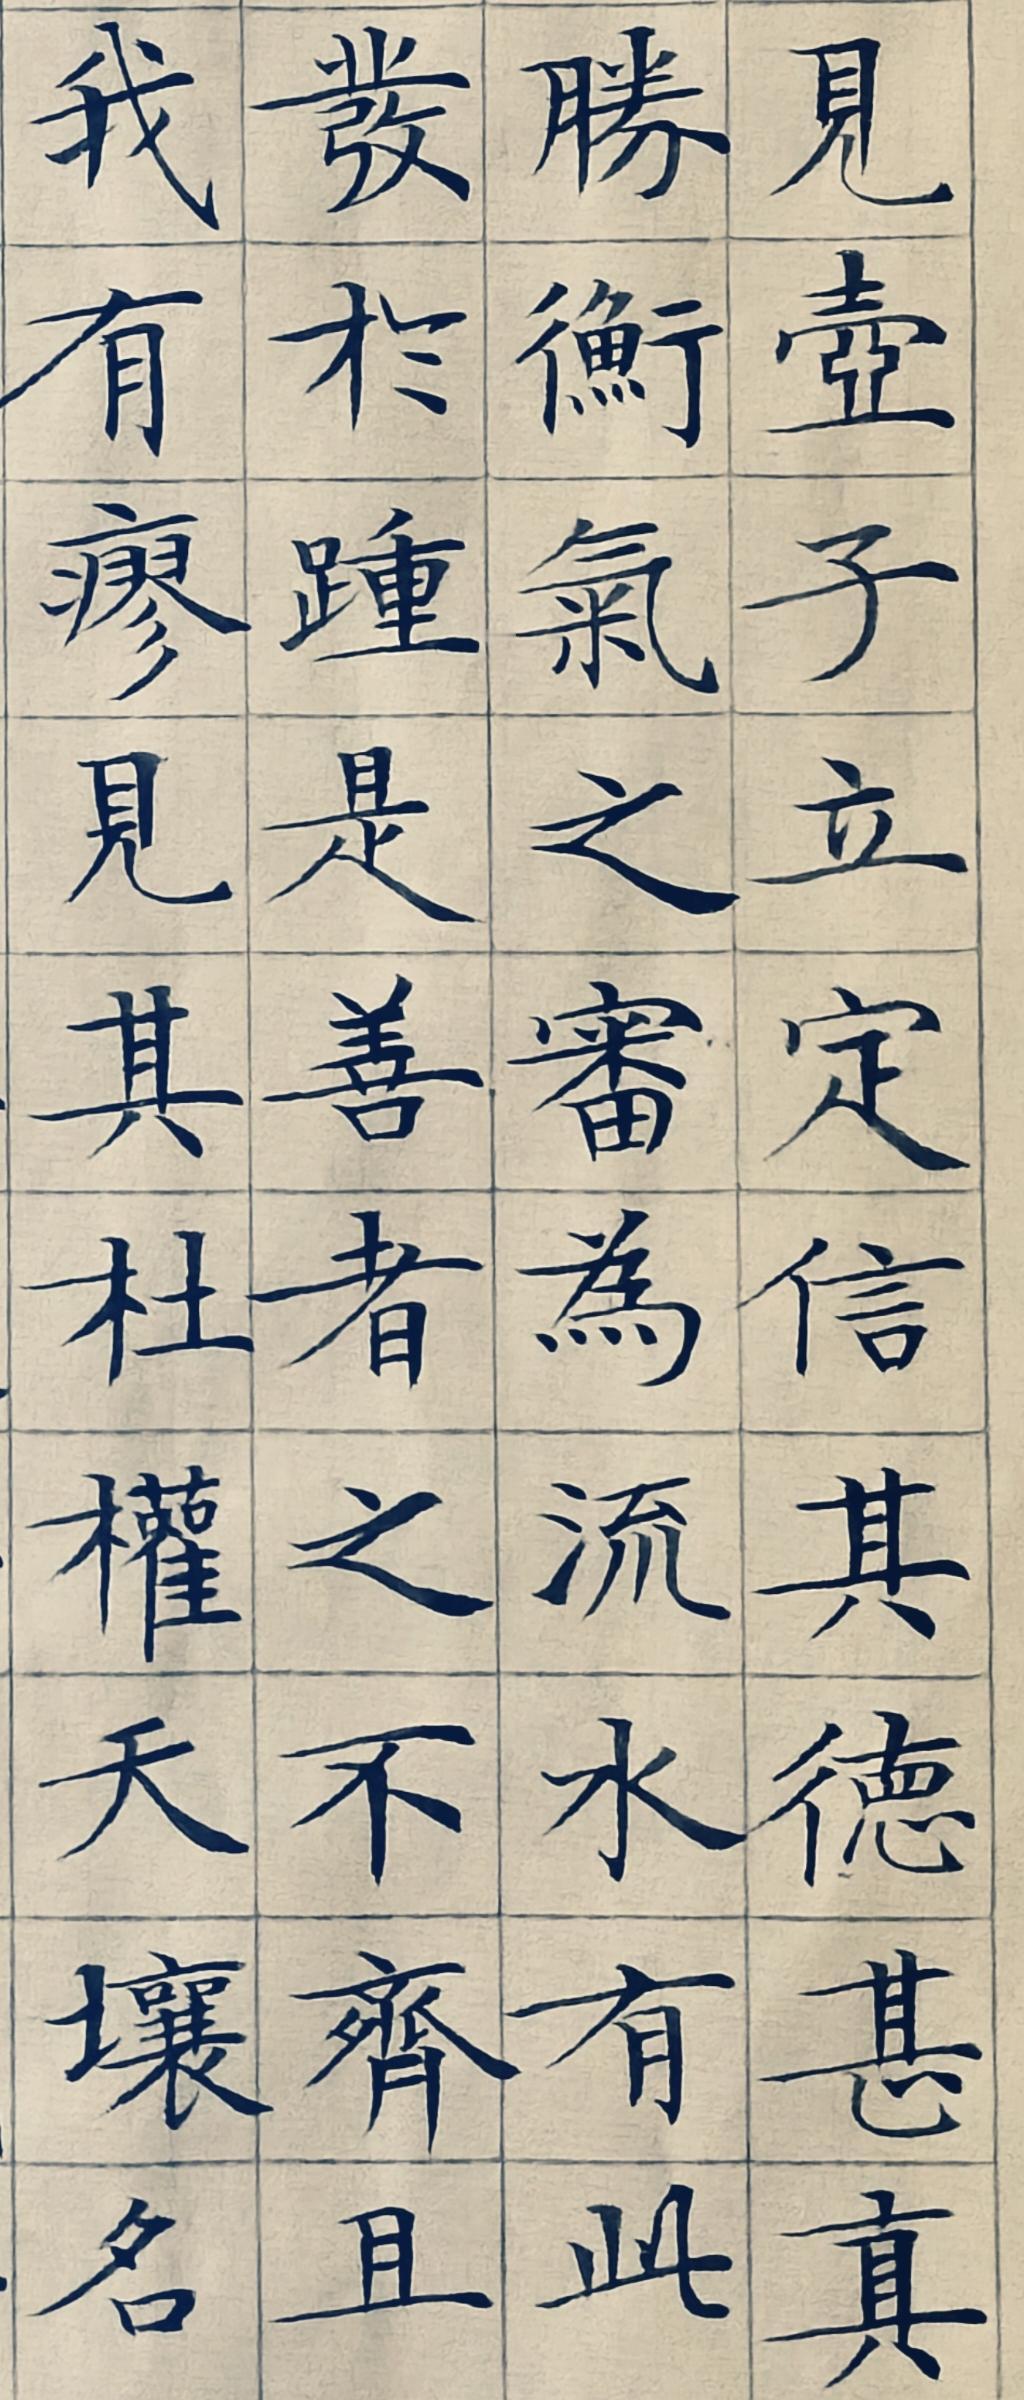 見壺子立定信其德甚真
勝衡氣之審為流水有此
發於踵是善者之不齊且
我有瘳見其杜權天壤名